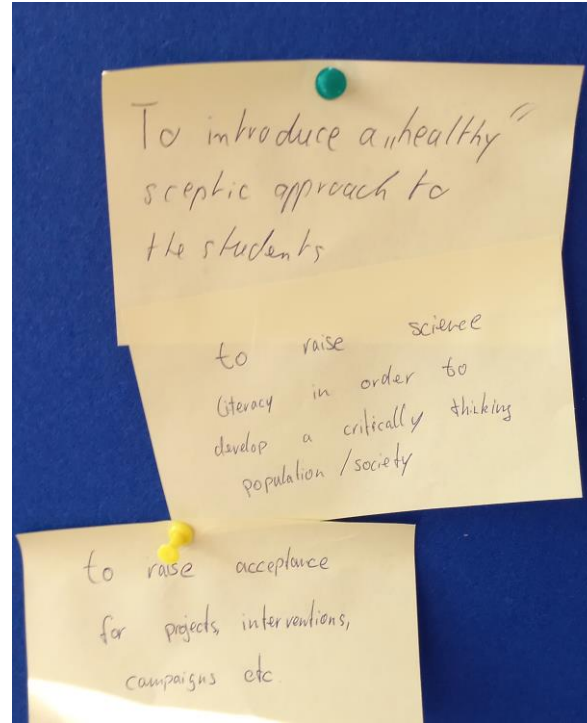 To introduce a „healthy”
sceptic approach to
the students
to raise science
literacy in order to
develop a critically thinking
population / society
to raise acceptance
for projects, interventions,
campaigns etc.